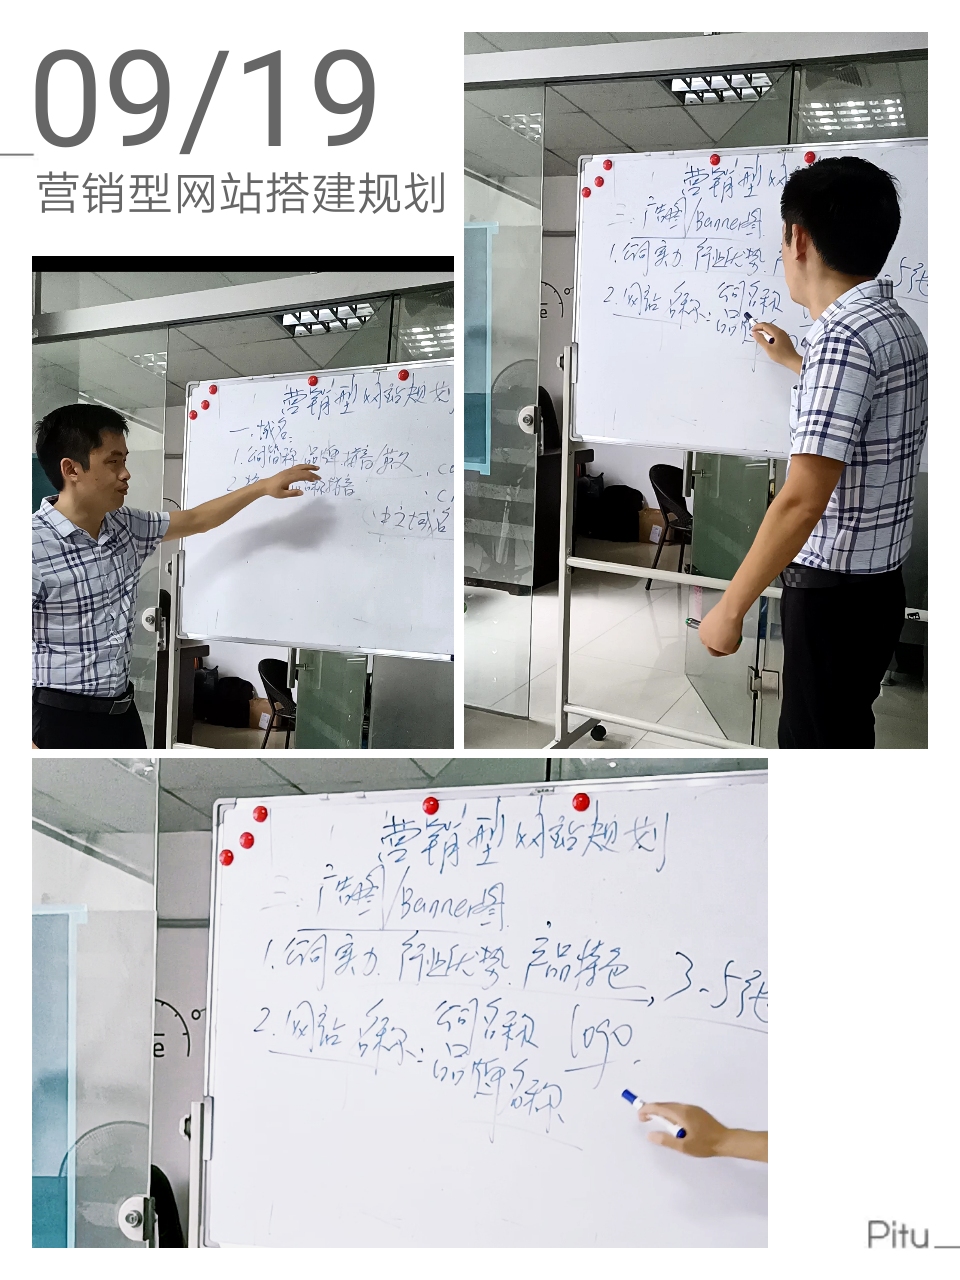 09/19
营销型网站搭建规划
营销型网站规划
一.域名:
1.公司简称 品牌 拼音/英文
2.
中文域名
营销型网
三.广告图/Banner图
1.公司实力 行业优势.
2.网站名称: 公司名称
品牌
营销型网站规划
三.广告图/Banner图
1.公司实力.行业优势.产品特色,3-5张
2.网站名称: 公司名称 logo.
品牌名称
Pitu